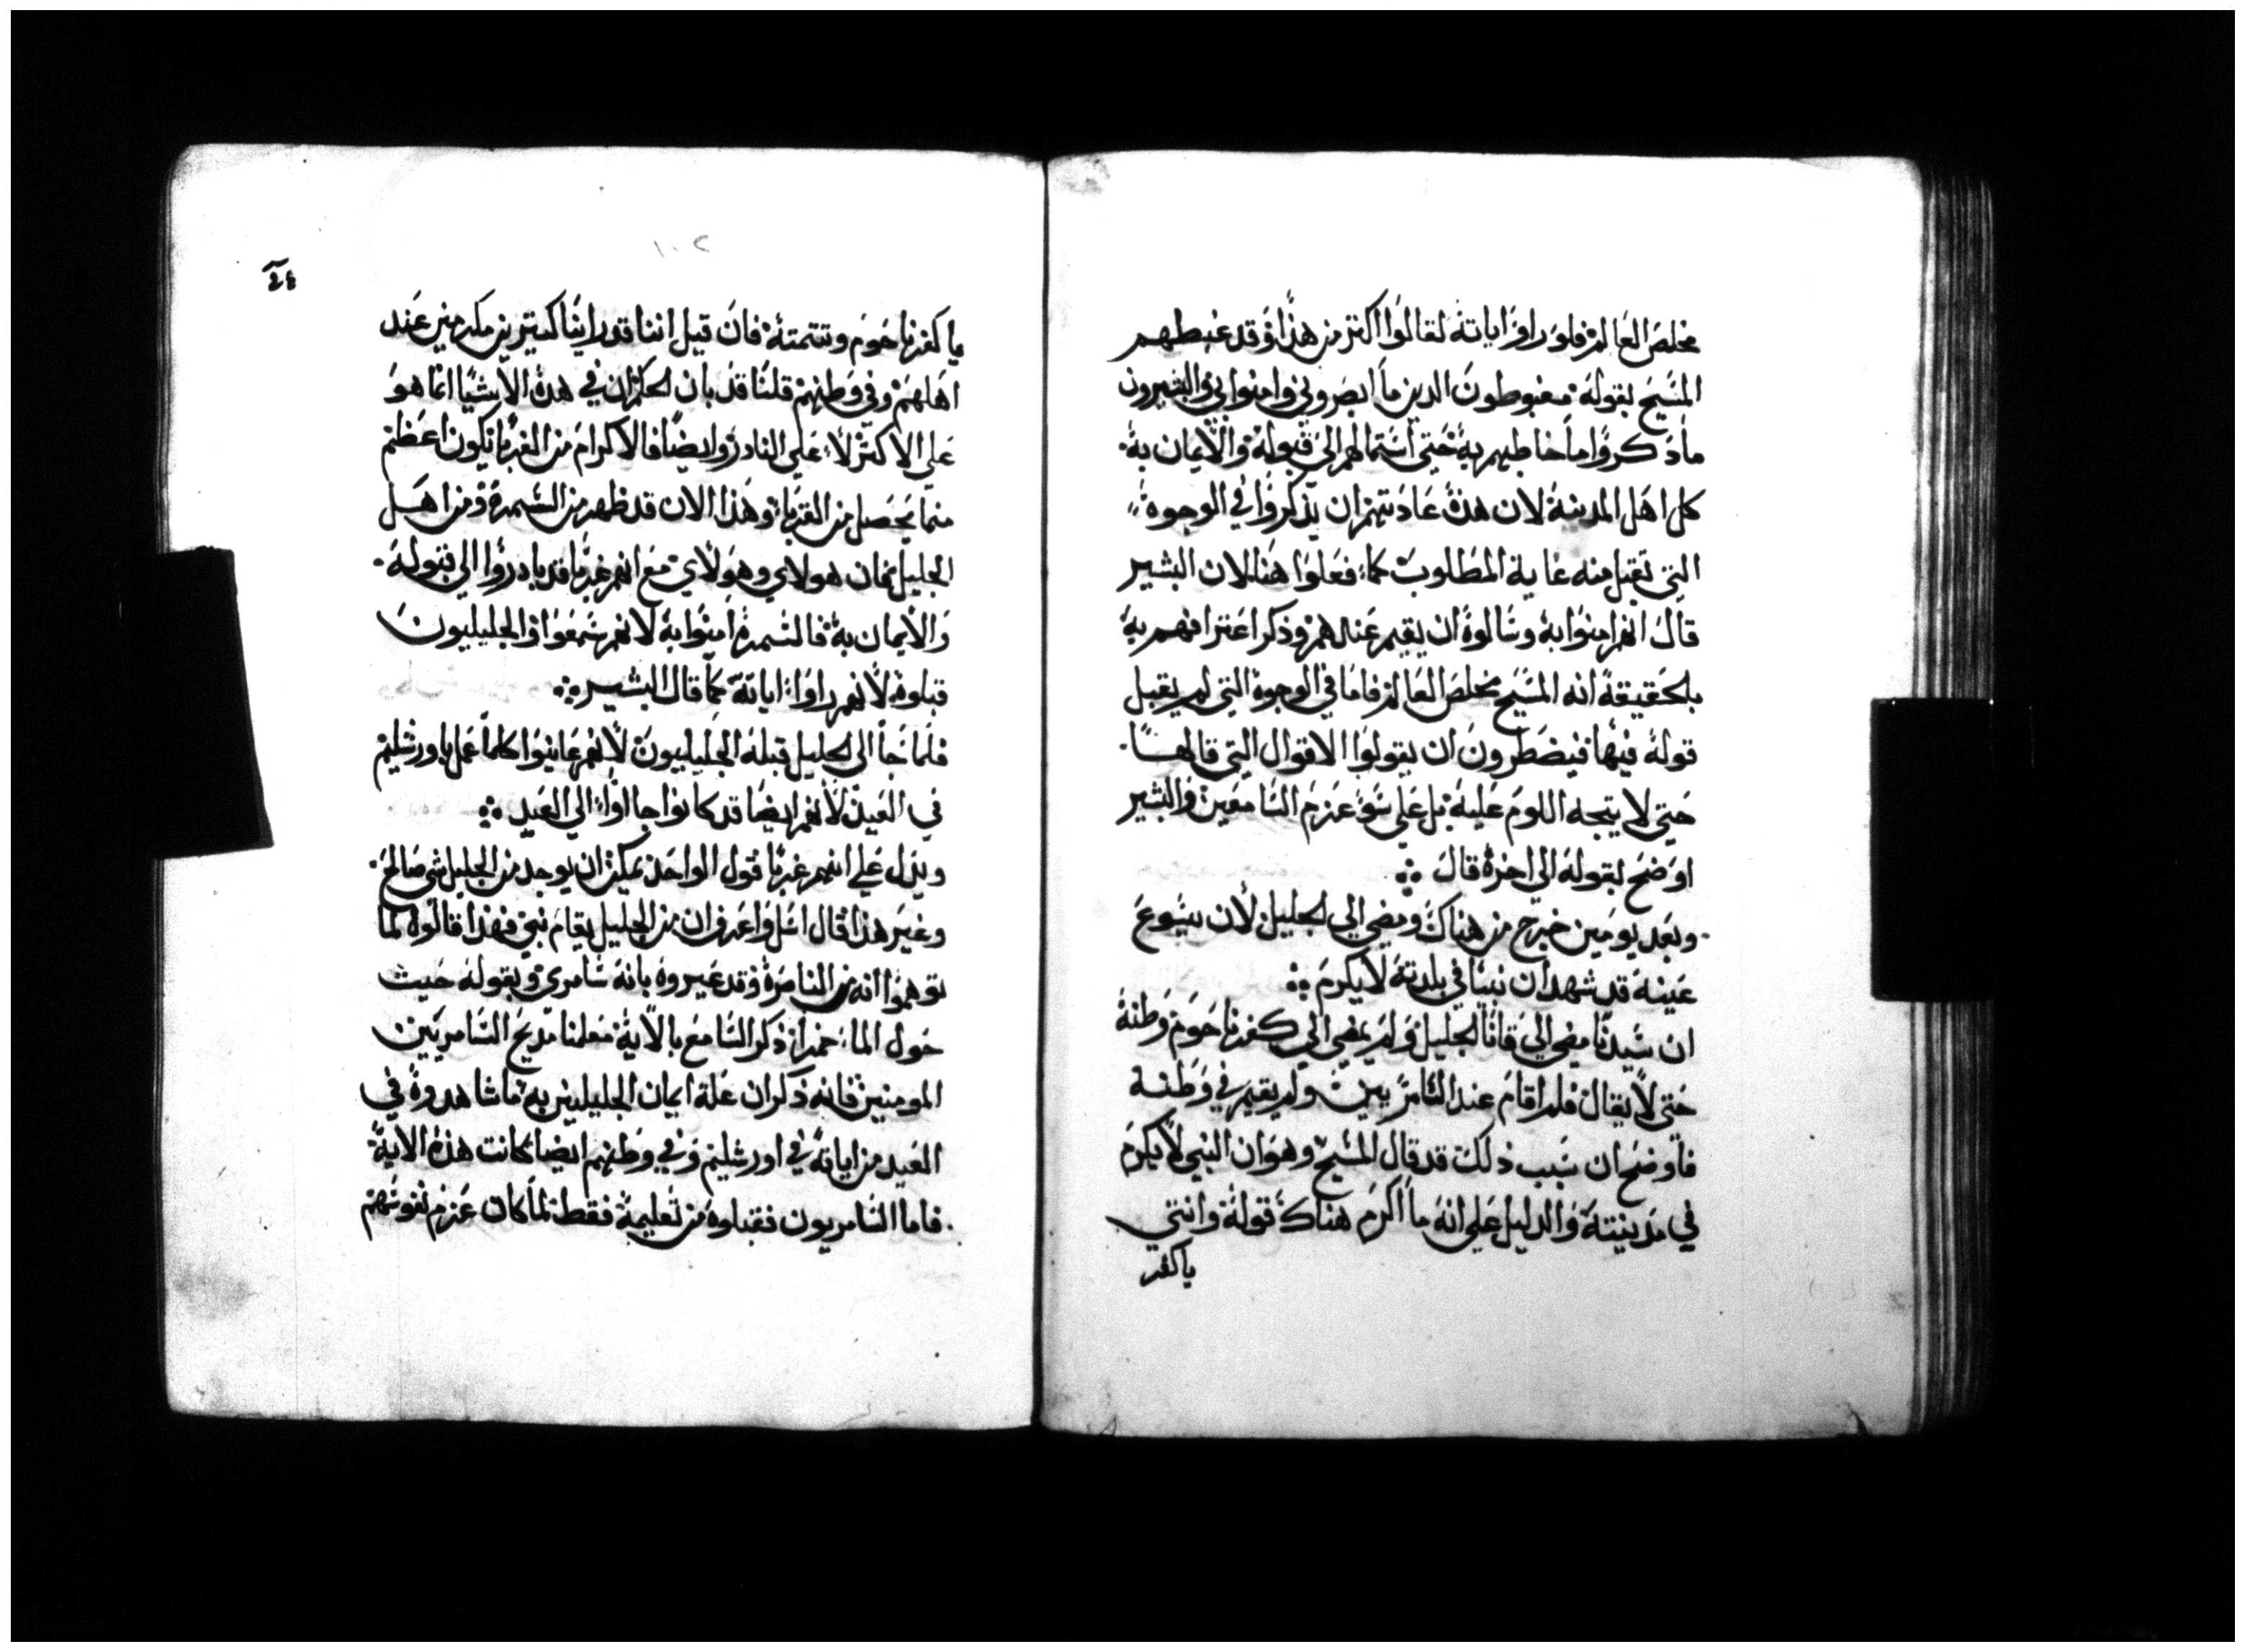 مخلص العالم فلو راوا اياته لقالوا اكتر من هذا وقد غبطهم
المسيح بقوله مغبوطون الدين ما ابصروني وامنوا بي والبشيرون
ما دكروا ما خاطبهم به حتى استمالهم الى قبوله والايمان به
كل اهل المدينة لان هده عادتهم ان يدكروا في الوجوه
التي تقبل منه غاية المطلوب كما فعلوا هنا لان البشير
قال انهم امنوا به وسالوه ان يقيم عندهم وذكر اعترافهم به
بلحقيقة انه المسيح مخلص العالم فاما في الوجوه التي لم يقبل
قوله فيها فيضطرون ان يقولوا الاقوال التي قالها
حتى لا يتجه اللوم عليه بل على سو عزم السامعين والبشير
اوضح بقوله الى اخره قال
وبعد يومين خرج من هناك ومضي الي الجليل لان يسوع
عينه قد شهد ان نبيا في بلدته لا يكرم
ان سيدنا مضي الي قانا الجليل ولم يمضي الي كفرناحوم وطنه
حتى لا يقال فلم اقام عند السامريين ولم يقيم في وطنه
فاوضح ان سبب ذلك قد قال المسيح وهو ان النبي لا يكرم
في مدينته والدليل على انه ما اكرم هناك قوله وانتي
يا كفر
١٠٢
يا كفرناحوم وتتمته فان قيل اننا قد راينا كتيرين مكرمين عند
اهلهم وفي وطنهم قلنا قد بان الحكم ان في هده الاشيا انما هو
علي الاكثر لا علي النادر وايضا فالاكرام من الغربا يكون اعظم
مما يحصل من القربا وهذا الان قد ظهر من السمرة ومن اهل
الجليل فان هولاي وهولاي مع انهم غربا قد بادروا الي قبوله
والايمان به فالسمرة امنوا به لانهم سمعوا والجليليون
قبلوه لانهم راوا اياته كما قال البشير
فلما جا الى الجليل قبله الجليليون لانهم عاينوا كلما عمل باورشليم
في العيد لانهم ايضا قد كانوا جاا وا الي العيد
ويدل علي انهم غربا قول الواحد يمكن ان يوجد من الجليل شي صالح
وغير هذا قال اسل واعرف ان من الجليل يقام نبي فهذا قالوه لما
توهموا انه من الناصرة وقد عيروه بانه سامري وبقوله حيث
حول الما خمرا ذكر السامع بالاية معلنا مديح السامريين
المومنين فانه ذكر ان علة ايمان الجليليين به ما شاهدوه في
العيد من اياته في اورشليم وفي وطنهم ايضا كانت هذه الاية
فاما السامريون فقبلوه من تعليمه فقط لما كان عزم نفوسهم